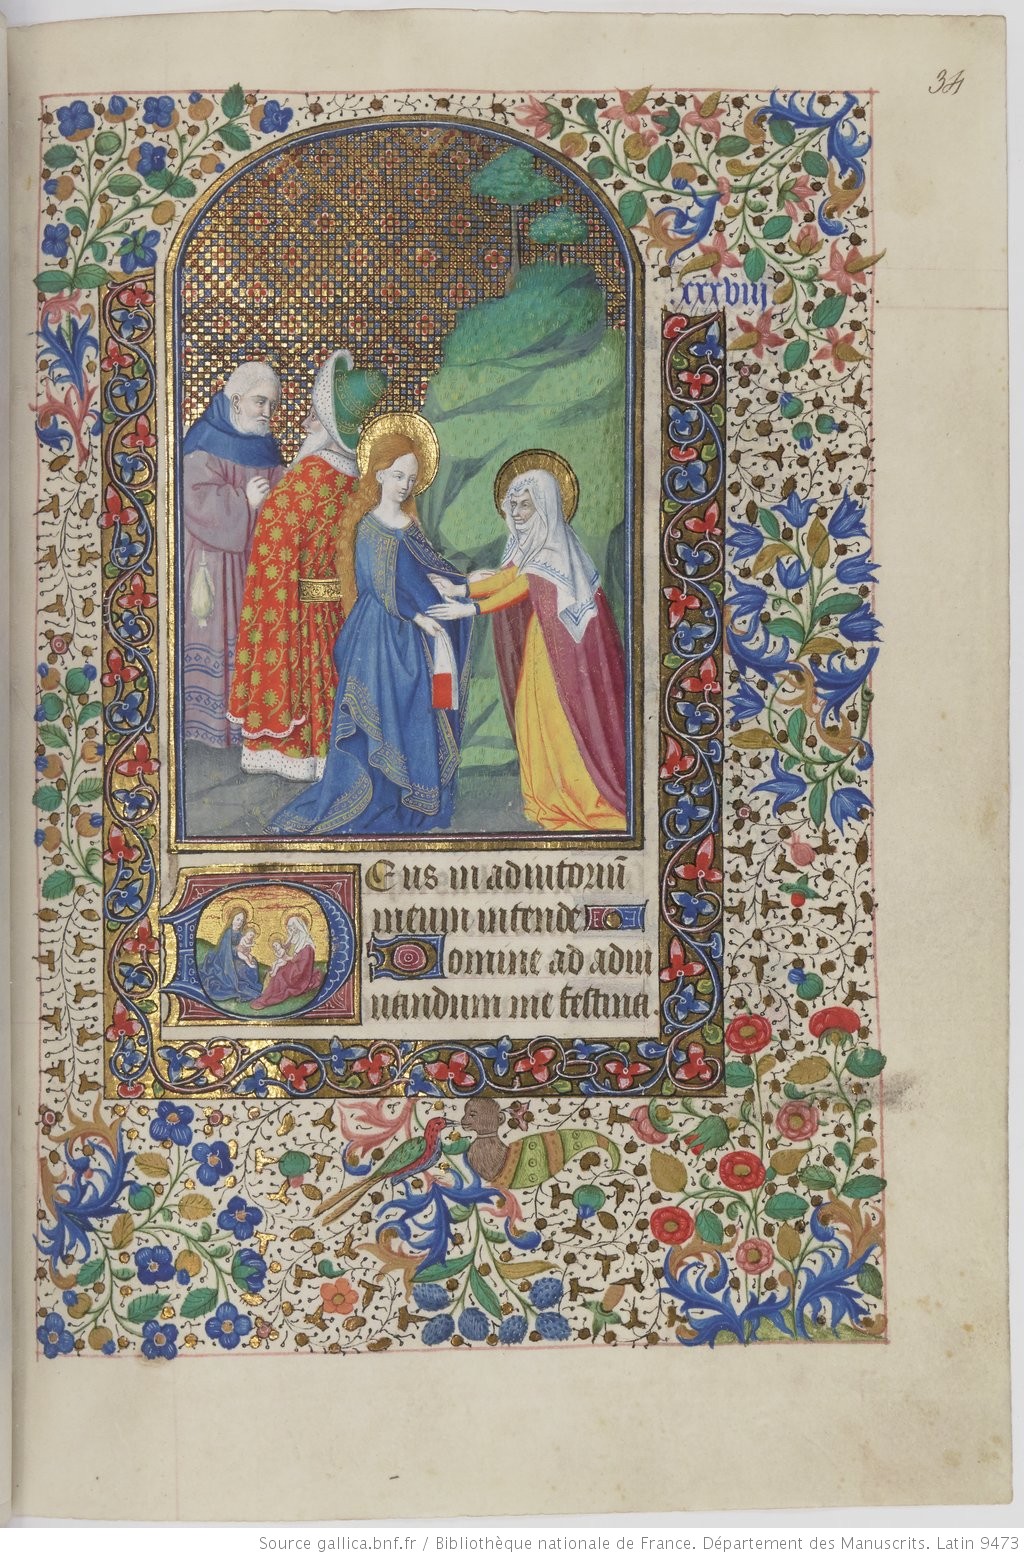 34
xxxviii
Deus in adiutoriu̅
meum intende
Domine ad adiu
uandum me festina.
Source gallica.bnf.fr / Bibliothèque nationale de France. Département des Manuscrits. Latin 9473